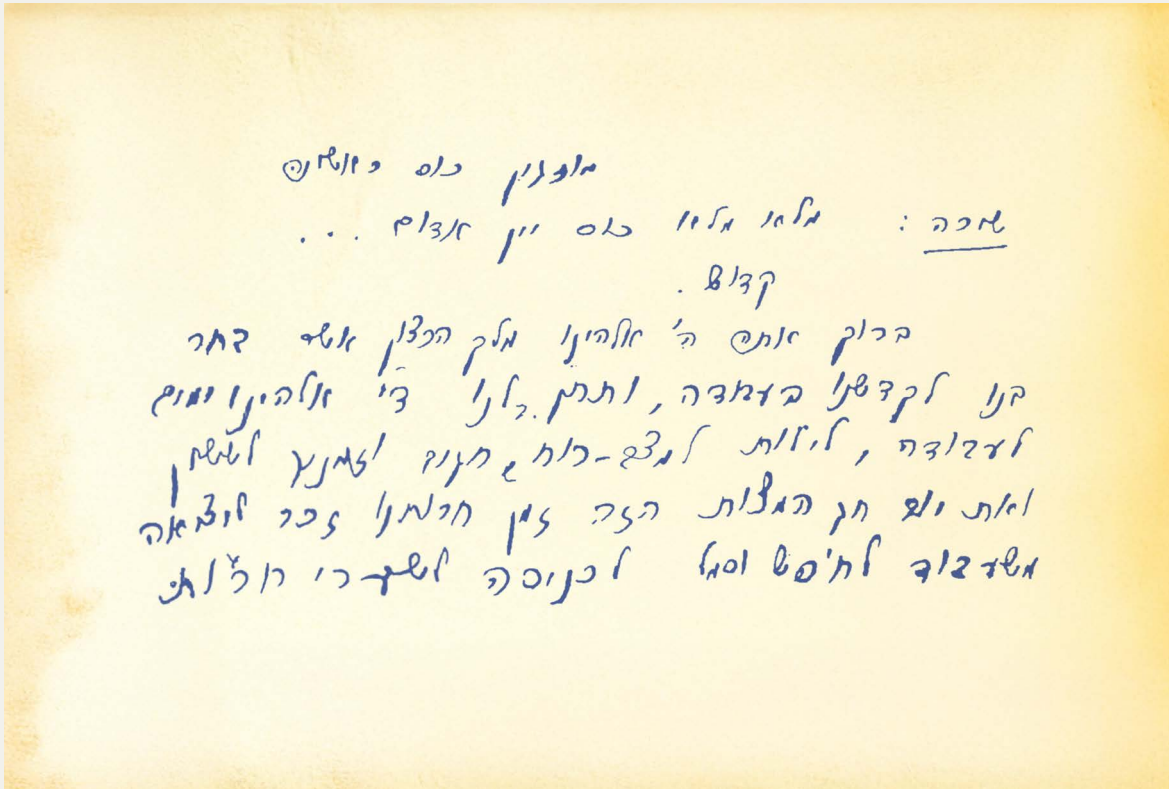 מוזגין כוס ראשונה
שירה : מלאו מלאו כוס יין אדום ...
קדוש .
ברוך אתה ה' אלהינו מלך הרצון אשר בחר
בנו לקדשנו בעבודה, ותתן לנו ד' אלהינו ימים
לעבודה, לילות למצב-רוח, חגים וזמנים לששון
ואת יום חג המצות הזה זמן חרותנו זכר ליציאה
משעבוד לחופש וסמל לכניסה לשערי חרות: